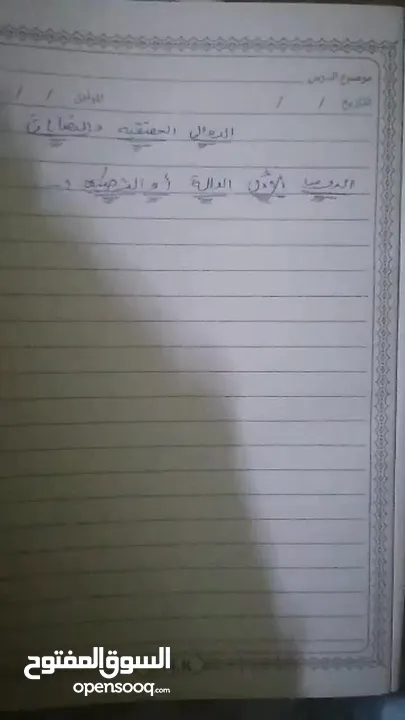 موضوع الدرس
التاريخ / / الموافق / /
الدوال الحقيقية والنهايات
الدرس الأول الدالة أو التطبيق :-
السوق المفتوح
opensooq.com